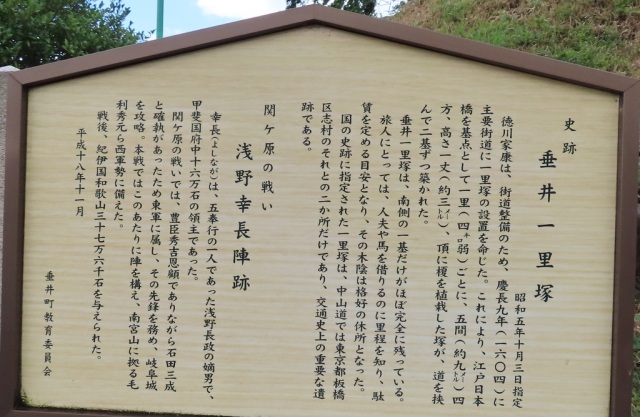 史跡
垂井一里塚
昭和五年十月三日指定
徳川家康は、街道整備のため、慶長九年(一六〇四)に
主要街道に一里塚の設置を命じた。これにより、江戸日本
橋を基点として一里(四キロ弱)ごとに、五間(約九メートル)四
方、高さ一丈(約三メートル)、頂に榎を植栽した塚が、道を挟
んで二基ずつ築かれた。
垂井一里塚は、南側の一基だけがほぼ完全に残っている。
旅人にとっては、人夫や馬を借りるのに里程を知り、駄
賃を定める目安となり、その木陰は格好の休所となった。
国の史跡に指定された一里塚は、中山道では東京都板橋
区志村のそれとの二か所だけであり、交通史上の重要な遺
跡である。
関ケ原の戦い
浅野幸長陣跡
幸長(よしなが)は、五奉行の一人であった浅野長政の嫡男で、
甲斐国府中十六万石の領主であった。
関ケ原の戦いでは、豊臣秀吉恩顧でありながら石田三成
と確執があったため東軍に属し、その先鋒を務め、岐阜城
を攻略。本戦ではこのあたりに陣を構え、南宮山に拠る毛
利秀元ら西軍勢に備えた。
戦後、紀伊国和歌山三十七万六千石を与えられた。
平成十八年十一月
垂井町教育委員会